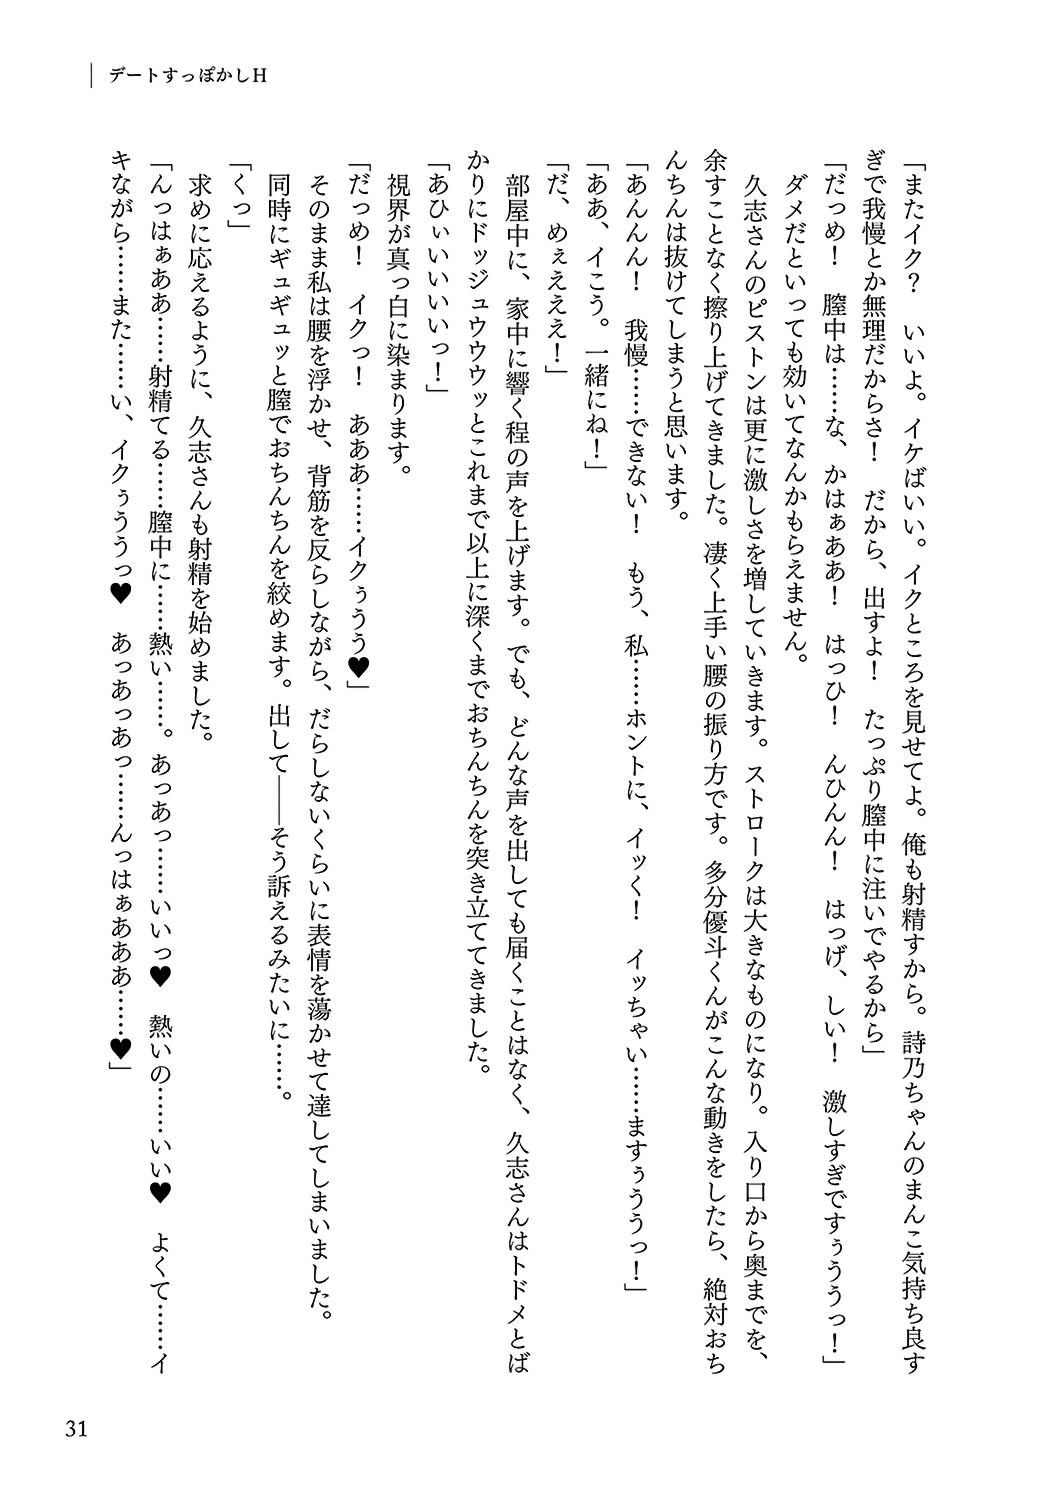 デートすっぽかしH
「またイク？　いいよ。イケばいい。イクところを見せてよ。俺も射精すから。詩乃ちゃんのまんこ気持ち良す
ぎで我慢とか無理だからさ！　だから、出すよ！　たっぷり膣中に注いでやるから」
「だっめ！　膣中は……な、かはぁああ！　はっひ！　んひんん！　はっげ、しい！　激しすぎですぅううっ！」
ダメだといっても効いてなんかもらえません。
久志さんのピストンは更に激しさを増していきます。ストロークは大きなものになり。入り口から奥までを、
余すことなく擦り上げてきました。凄く上手い腰の振り方です。多分優斗くんがこんな動きをしたら、絶対おち
んちんは抜けてしまうと思います。
「あんんん！　我慢……できない！　もう、私……ホントに、イッく！　イッちゃい……ますぅううっ！」
「ああ、イこう。一緒にね！」
「だ、めぇええ！」
部屋中に、家中に響く程の声を上げます。でも、どんな声を出しても届くことはなく、久志さんはトドメとば
かりにドッジュウウウッとこれまで以上に深くまでおちんちんを突き立ててきました。
「あひぃいいいいっ！」
視界が真っ白に染まります。
「だっめ！　イクっ！　あああ……イクぅうう♥」
そのまま私は腰を浮かせ、背筋を反らしながら、だらしないくらいに表情を蕩かせて達してしまいました。
同時にギュギュッと膣でおちんちんを絞めます。出して――そう訴えるみたいに……。
「くっ」
求めに応えるように、久志さんも射精を始めました。
「んっはぁああ……射精てる……膣中に……熱い……。あっあっ……いいっ♥　熱いの……いい♥　よくて……イ
キながら……また……い、イクぅううっ♥　あっあっあっ……んっはぁあああ……♥」
31